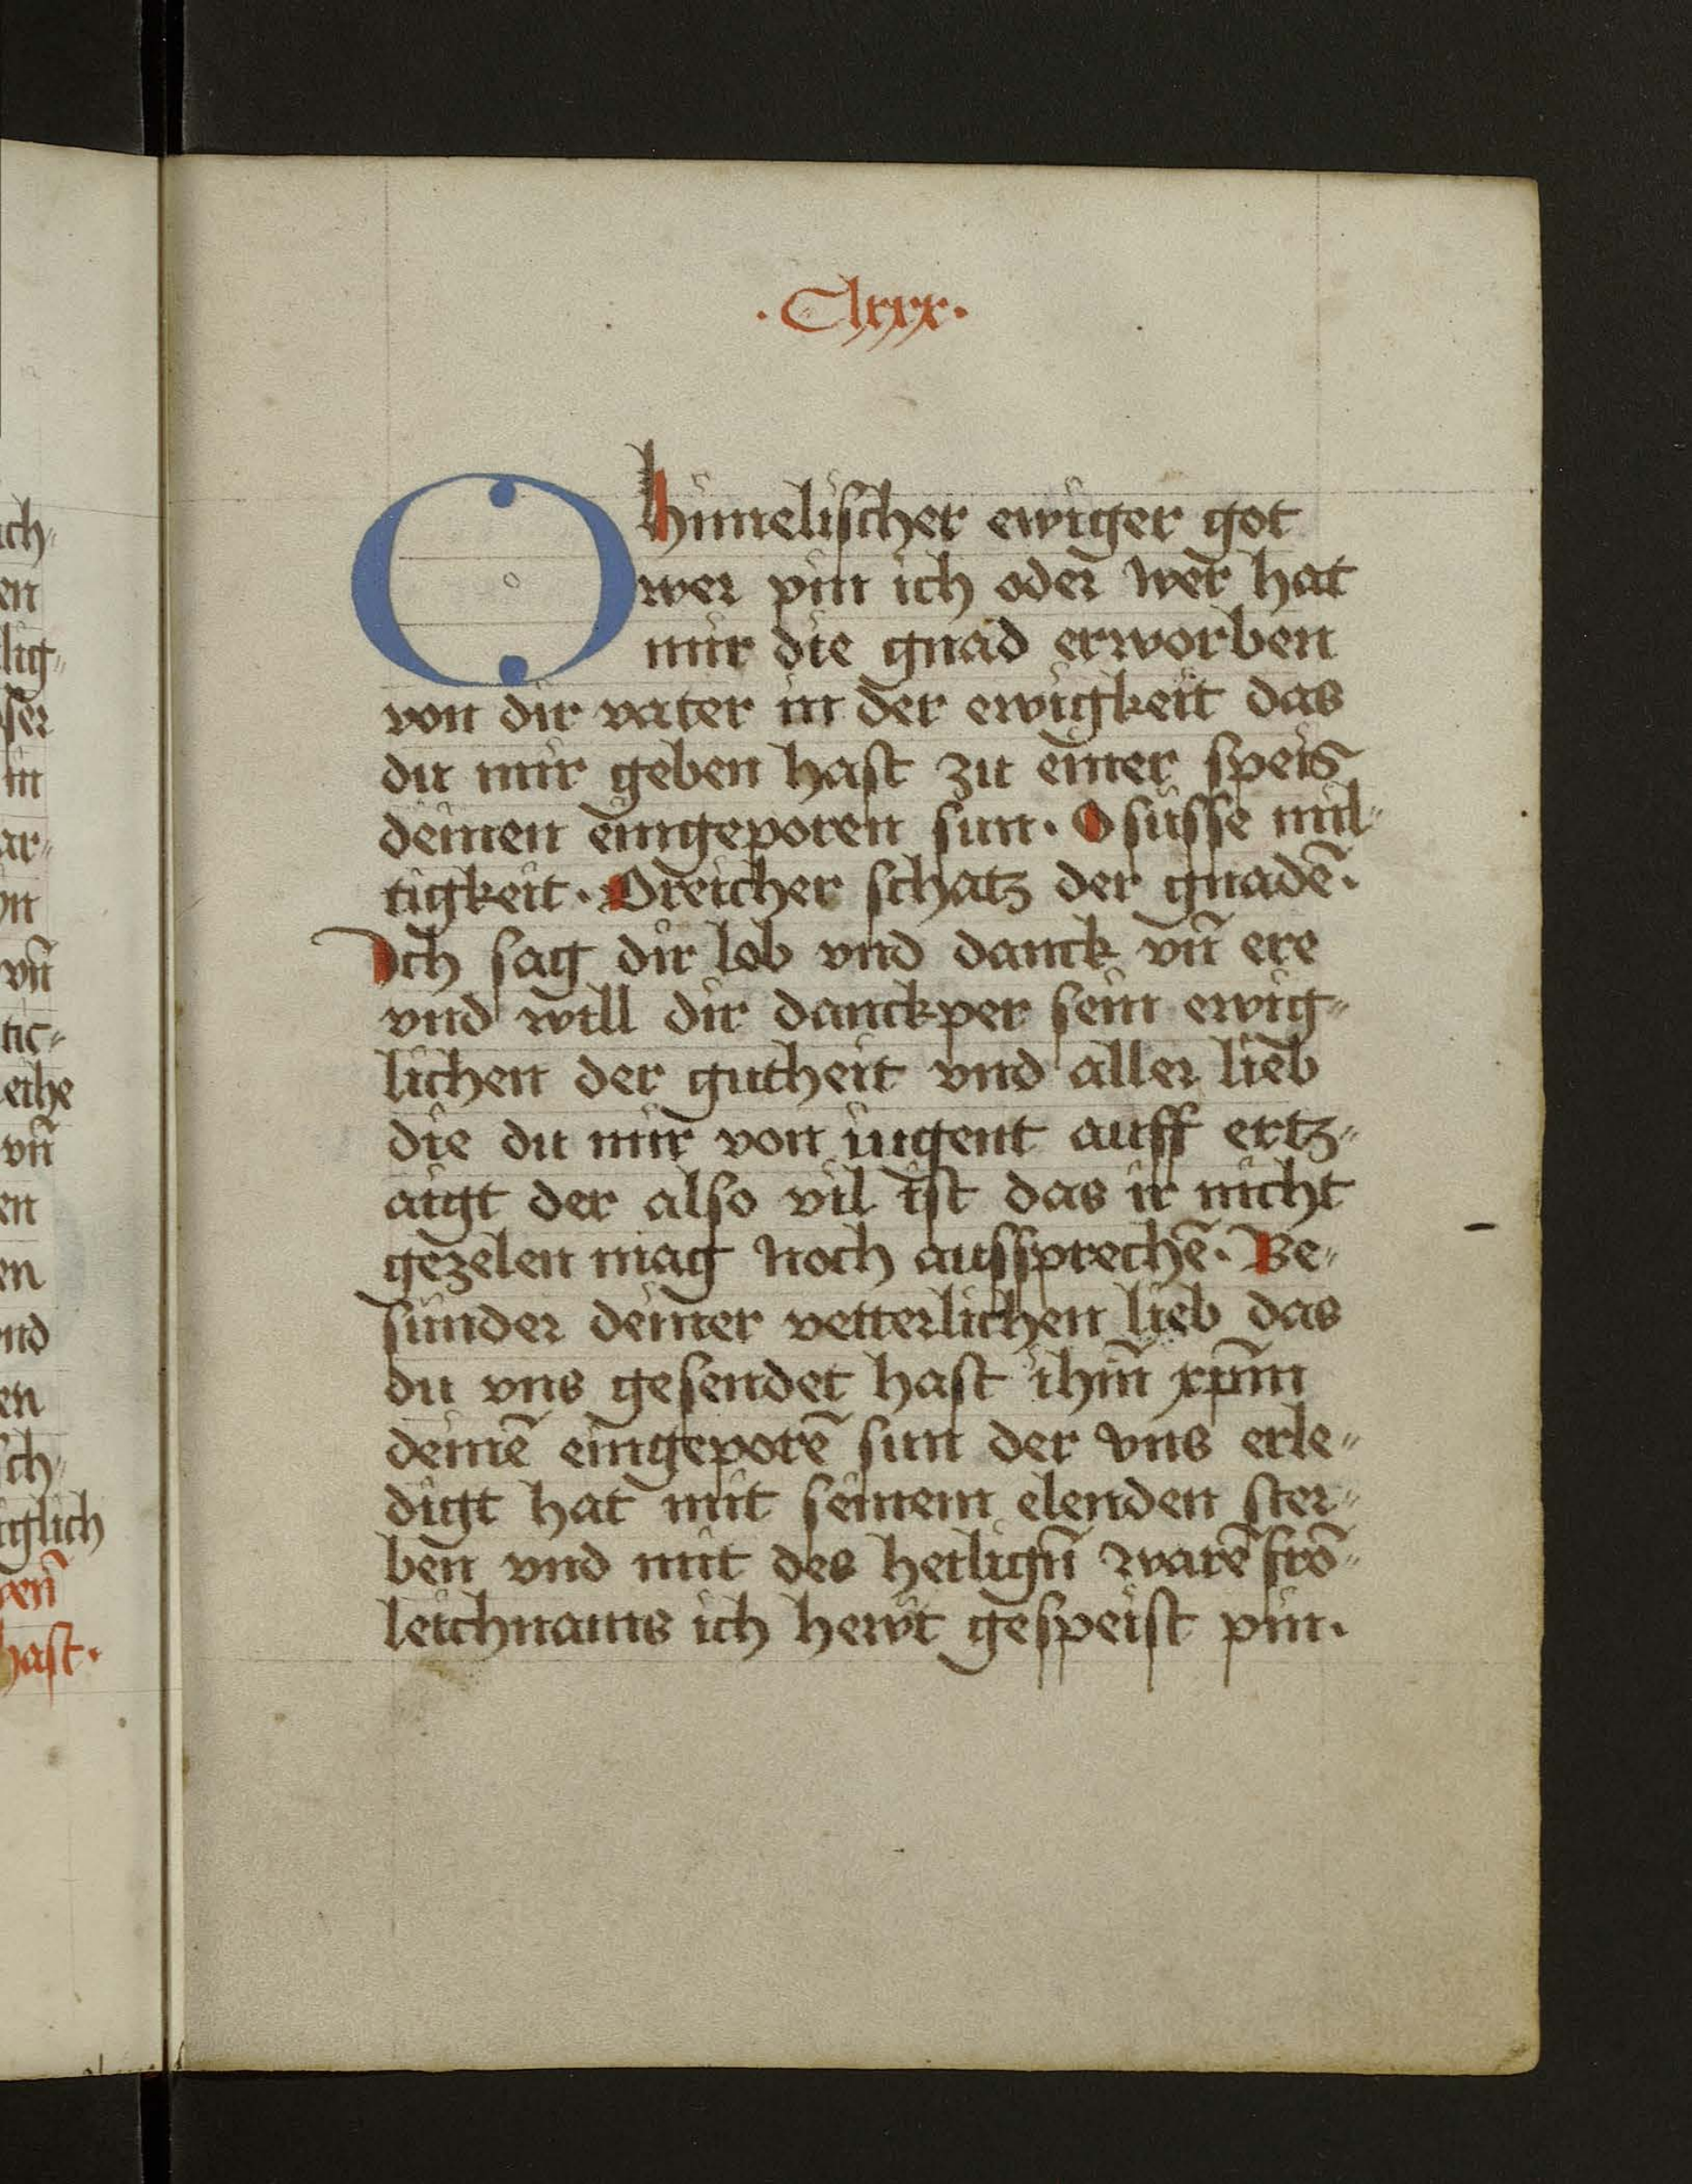 ·Clxxx·
O himelischer ewiger got
wer pin ich oder wer hat
mir die gnad erworben
von dir vater in der ewigkeit das
du mir geben hast zu einer speis
deinen eingeporen sun. O süsse mil-
tigkeit. O reicher schatz der gnadē.
Ich sag dir lob vnd danck vn̄ ere
vnd will dir danckper sein ewig-
lichen der gutheit vnd aller lieb
die du mir von iugent auff ertz-
aigt der also vil ist das ir nicht
gezelen mag noch aussprechē. Be-
sunder deiner vetterlichen lieb das
du vns gesendet hast ihm̄ xpm̄
deinē eingeporē sun der vns erle-
digt hat mit seinem elenden ster-
ben vnd mit des heilign̄ warē frō-
leichnams ich hewt gespeist pin.